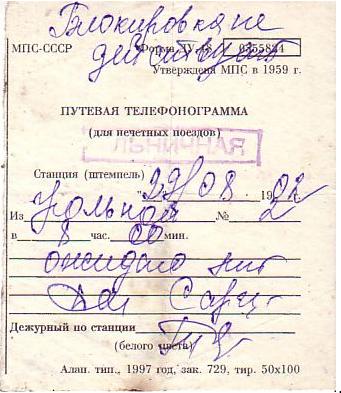 Блокировка не
действует
МПС-СССР Форма ДУ-48 0355834
Утверждена МПС в 1959 г.
ПУТЕВАЯ ТЕЛЕФОНОГРАММА
(для нечетных поездов)
ЛЬНИЧНАЯ
Станция (штемпель) "29/08 19 02
Из Удельной № 2
в 8 час. 00 мин.
ожидаю
Дежурный по станции
(белого цвета)
Алап. тип., 1997 год, зак. 729, тир. 50х100